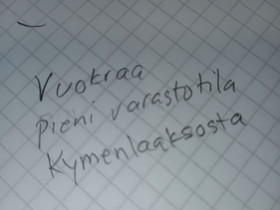 Vuokraa
pieni varastotila
Kymenlaaksosta